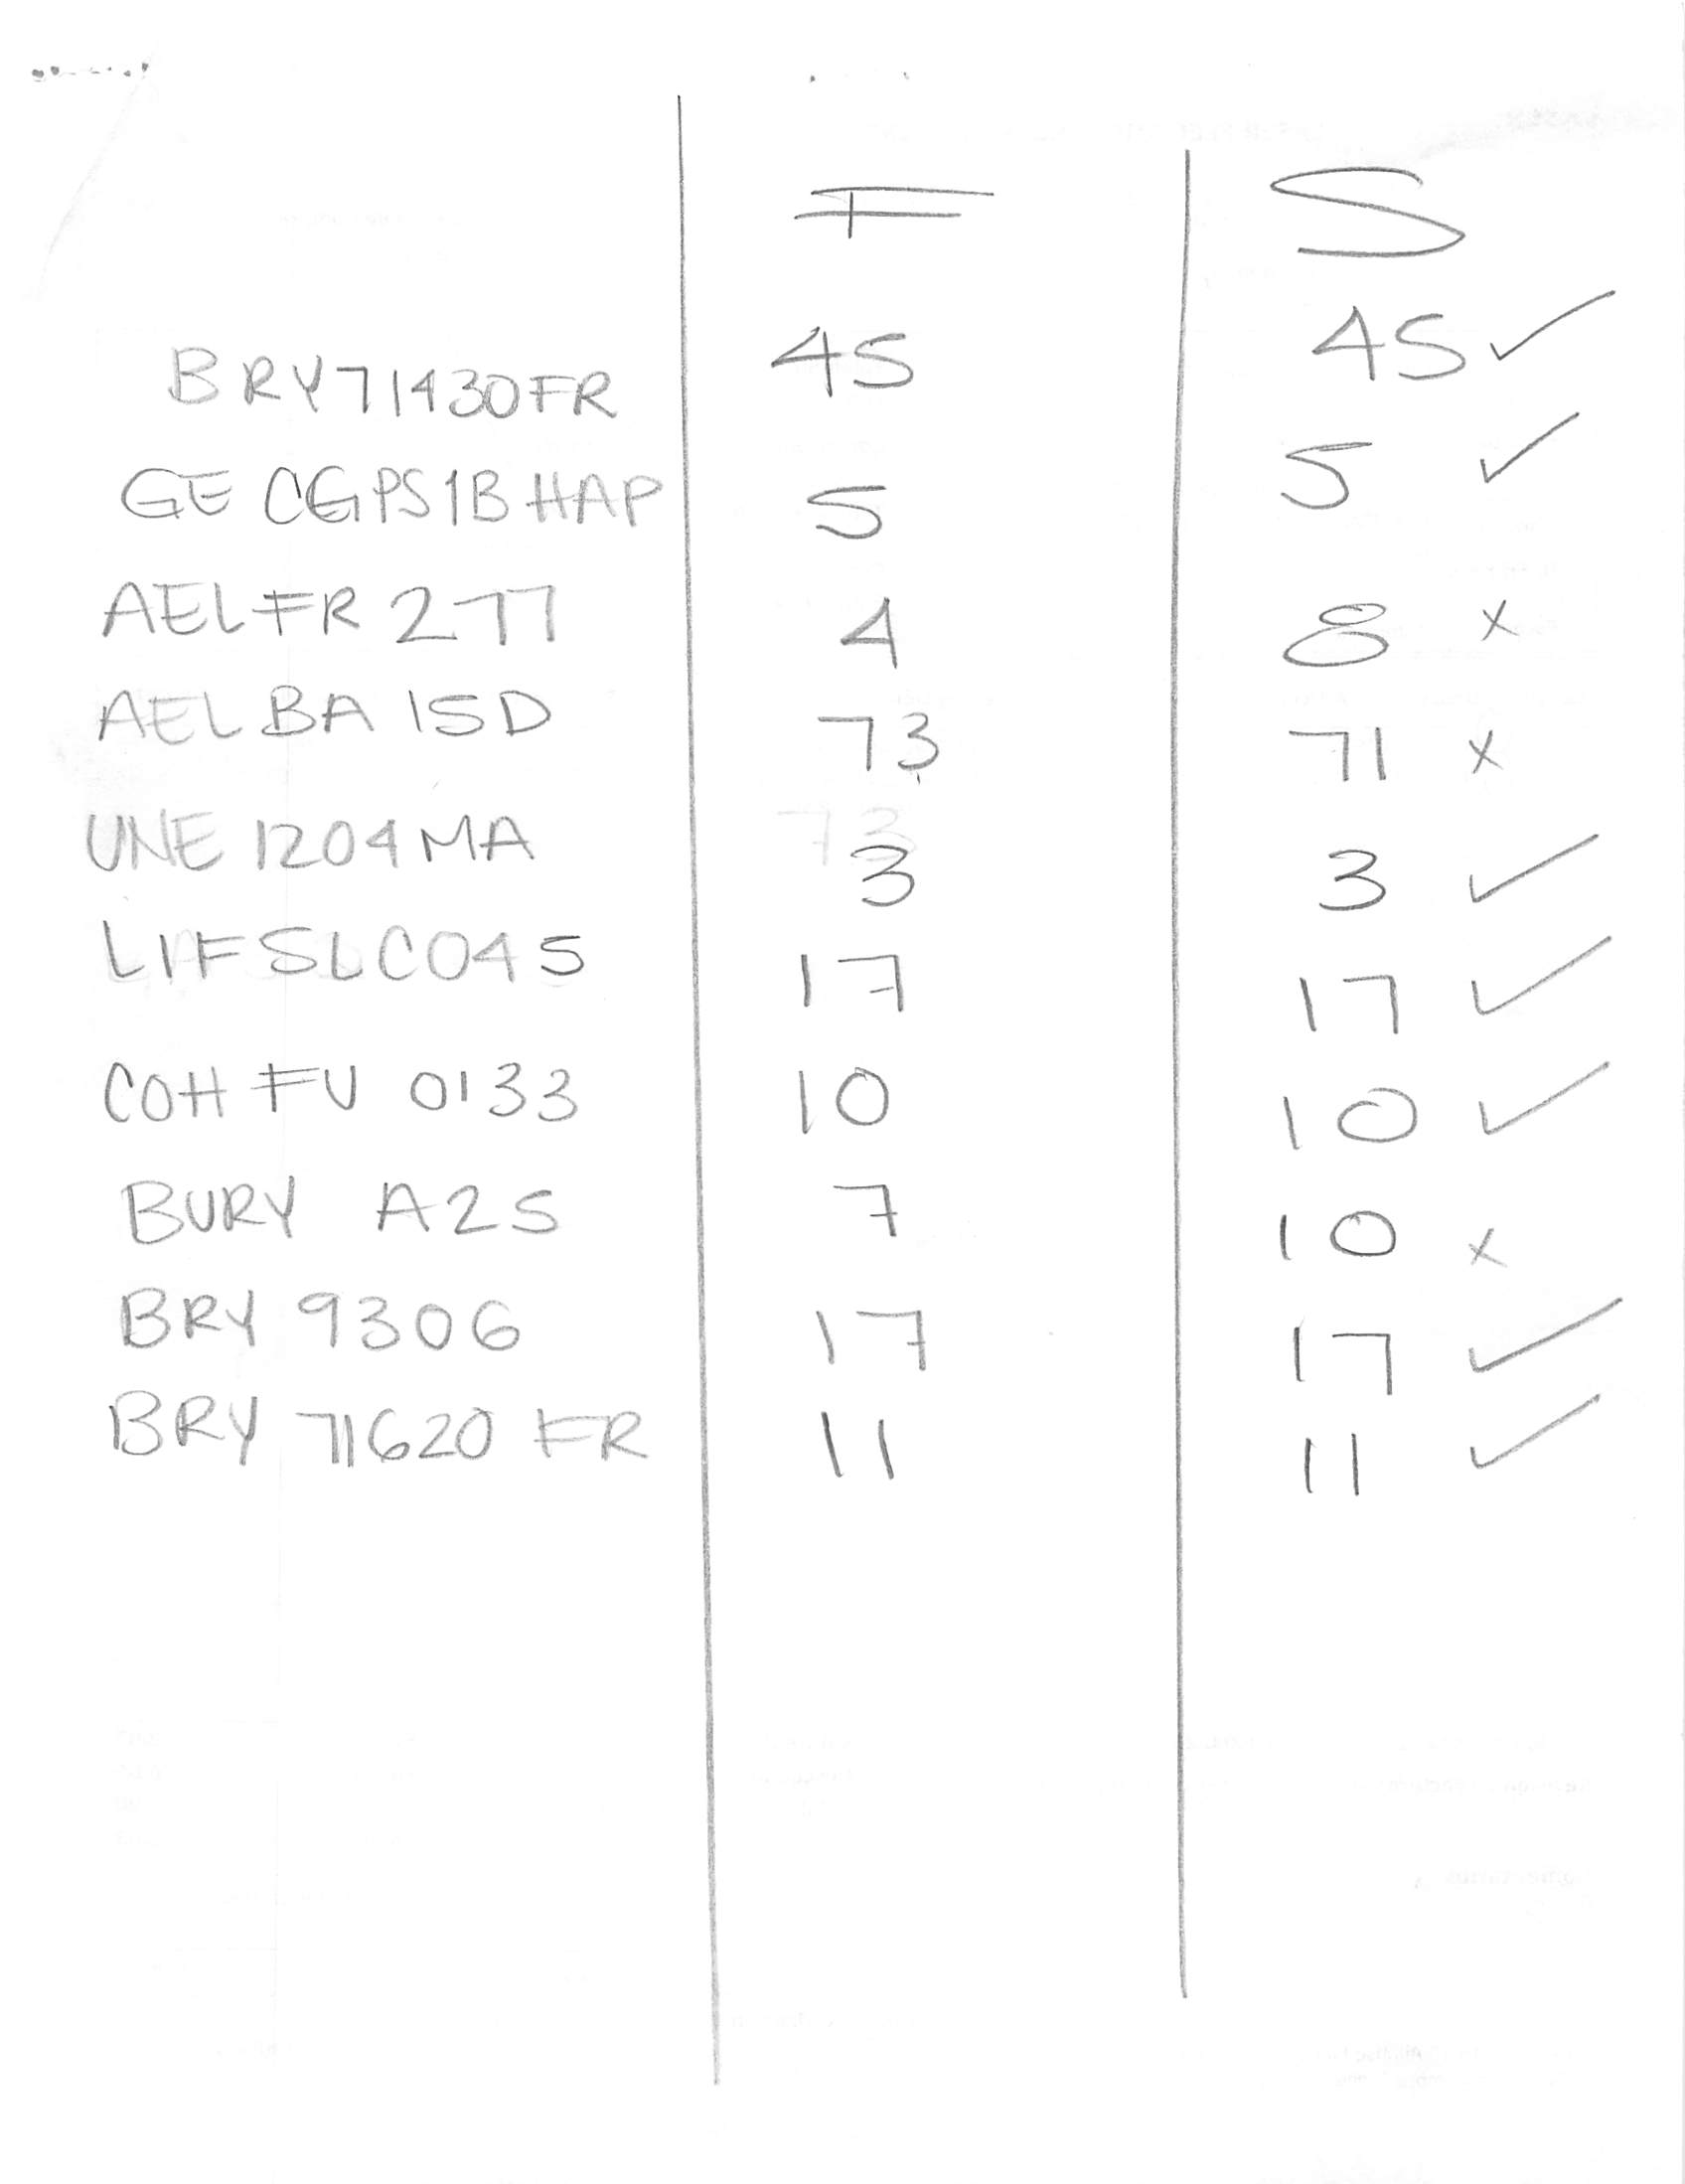 F S
BRY71430FR 45 45 ✓
GE CGPS1BHAP 5 5 ✓
AELFR 277 4 8 x
AEL BA 15D 73 71 x
UNE 1204MA 3 3 ✓
LIFSLC045 17 17 ✓
COH FU 0133 10 10 ✓
BURY A25 7 10 x
BRY 9306 17 17 ✓
BRY 71620 FR 11 11 ✓